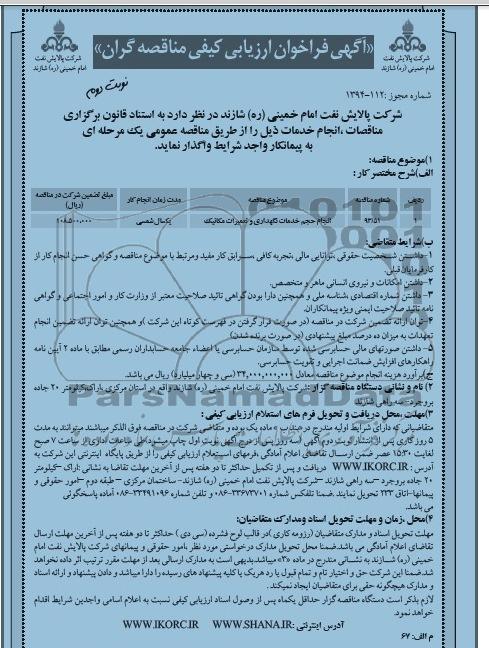 «آگهی فراخوان ارزیابی کیفی مناقصه گران»
شرکت پالایش نفت
امام خمینی (ره) شازند
شرکت پالایش نفت
امام خمینی (ره) شازند
نوبت دوم
شماره مجوز :۱۱۲-۱۳۹۴
شرکت پالایش نفت امام خمینی (ره) شازند در نظر دارد به استناد قانون برگزاری
مناقصات ،انجام خدمات ذیل را از طریق مناقصه عمومی یک مرحله ای
به پیمانکار واجد شرایط واگذار نماید.
۱)موضوع مناقصه:
الف)شرح مختصر کار :
ردیف شماره مناقصه موضوع مناقصه مدت زمان انجام کار مبلغ تضمین شرکت در مناقصه (ریال)
۱ انجام حجم خدمات نگهداری و تعمیرات مکانیک یکسال شمسی
ب)شرایط متقاضی:
۱-داشتن شخصیت حقوقی ،توانایی مالی ،تجربه کافی ،سوابق کار مفید ومرتبط با موضوع مناقصه و گواهی حسن انجام کار از
کارفرمایان قبلی.
۲-داشتن امکانات و نیروی انسانی ماهر و متخصص.
۳-داشتن شماره اقتصادی ،شناسه ملی و همچنین دارا بودن گواهی تائید صلاحیت معتبر از وزارت کار و امور اجتماعی و گواهی
نامه تائید صلاحیت ایمنی ویژه پیمانکاران.
۴-توان ارائه تضمین شرکت در مناقصه (در صورت قرار گرفتن در فهرست کوتاه این شرکت )و همچنین توان ارائه تضمین انجام
تعهدات به میزان ده درصد مبلغ پیشنهادی (در صورت برنده شدن)
۵-داشتن صورتهای مالی حسابرسی شده توسط سازمان حسابرسی یا اعضاء جامعه حسابداران رسمی مطابق با ماده ۲ آیین نامه
راهکارهای افزایش ضمانت اجرایی و تقویت حسابرسی.
ج)برآورد هزینه انجام موضوع مناقصه معادل ۳۴,۰۰۰,۰۰۰,۰۰۰ (سی و چهار میلیارد) ریال می باشد.
۲) نام و نشانی دستگاه مناقصه گزار :شرکت پالایش نفت امام خمینی (ره) شازند واقع در استان مرکزی ،اراک،کیلومتر ۲۰ جاده
بروجرد-سه راهی شازند
۳)مهلت ،محل دریافت و تحویل فرم های استعلام ارزیابی کیفی :
متقاضیانی که دارای شرایط اولیه مندرج در «بند ب » ماده یک بوده و متقاضی شرکت در مناقصه فوق الذکر میباشند میتوانند به مدت
۵ روز کاری پس از انتشار نوبت دوم آگهی
لغایت ۱۵:۳۰ عصر ضمن ارسال تقاضای اعلام آمادگی ،فرمهای استعلام ارزیابی کیفی را از طریق پایگاه اینترنتی این شرکت به
آدرس : WWW.IKORC.IR دریافت و پس از تکمیل حداکثر تا دو هفته پس از آخرین مهلت تقاضا به نشانی :اراک -کیلومتر
۲۰ جاده بروجرد -سه راهی شازند -شرکت پالایش نفت امام خمینی (ره) شازند- ساختمان مرکزی - طبقه دوم -امور حقوقی و
پیمانها-اتاق ۲۳۳ تحویل نمایند .ضمنا تلفکس شماره ۳۳۶۷۳۷۰۱-۰۸۶ و تلفن شماره ۳۳۴۹۱۰۹۶-۰۸۶ آماده پاسخگوئی
می باشد.
۴)محل ،زمان و مهلت تحویل اسناد ومدارک متقاضیان:
مهلت تحویل اسناد و مدارک متقاضیان (رزومه کاری )در قالب لوح فشرده (سی دی ) حداکثر تا دو هفته پس از آخرین مهلت ارسال
تقاضای اعلام آمادگی می باشد.ضمنا محل تحویل مدارک درخواستی مورد نظر ،امور حقوقی و پیمانهای شرکت پالایش نفت امام
خمینی (ره) شازند به نشانی مندرج در ماده «۳» میباشد.بدیهی است به مدارک ارسالی بعد از مهلت مقرر ترتیب اثر داده نخواهد
شد.ضمنا این شرکت حق و اختیار تام و تمام قبول یا رد هر یک یا کلیه پیشنهاد های رسیده را دارا میباشد و دادن پیشنهاد و ارائه اسناد
و مدارک هیچگونه حقی برای متقاضیان ایجاد نمیکند .
لازم بذکر است دستگاه مناقصه گزار حداقل یکماه پس از وصول اسناد ارزیابی کیفی نسبت به اعلام اسامی واجدین شرایط اقدام
خواهد نمود.
آدرس اینترنتی :WWW.IKORC.IR WWW.SHANA.IR
م الف: ۶۷